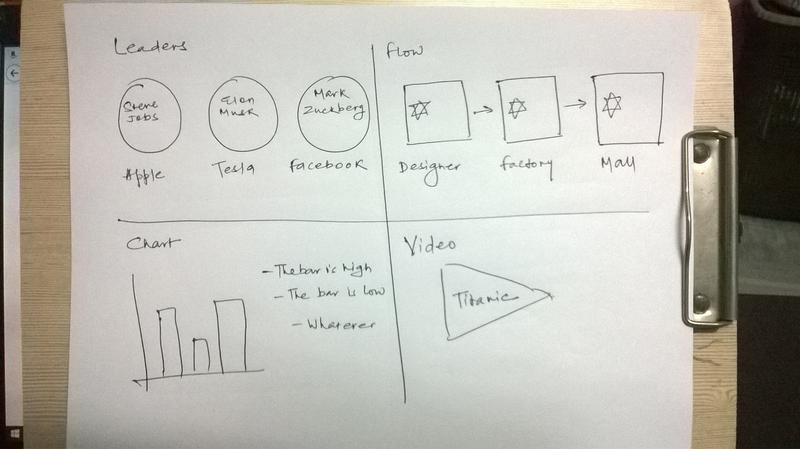 Leaders
Steve
Jobs
Elon
Musk
Mark
Zuckberg
Apple
Tesla
Facebook
Flow
Designer
Factory
Mall
Chart
- The bar is high
- The bar is low
- Whatever
Video
Titanic